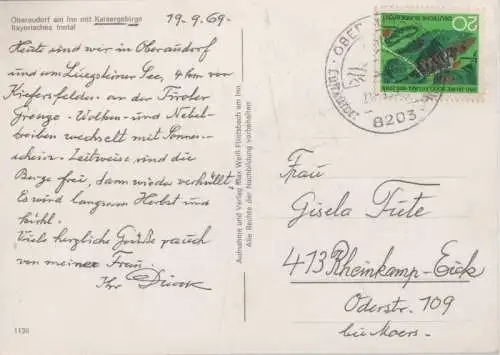 Oberaudorf am Inn mit Kaisergebirge
Bayerisches Inntal
19.9.69.
Heute sind wir in Oberaudorf
und am Luegsteiner See, 4 km vor
Kiefersfelden an der Tiroler
Grenze. Wolken- und Nebel-
treiben wechselt mit Sonnen-
schein. Zeitweise sind die
Berge frei, dann wieder verhüllt.
Es wird langsam Herbst und
kühl.
Viele herzliche Grüße auch
von meiner Frau.
Ihr
1136
Aufnahme und Verlag Max Weiß Flintsbach am Inn
Alle Rechte der Nachbildung vorbehalten
OBER
LUFTKURORT
8203
20
DEUTSCHE BUNDESPOST
Frau
Gisela Fiete
413 Rheinkamp-Eick
Oderstr. 109
bei Moers.